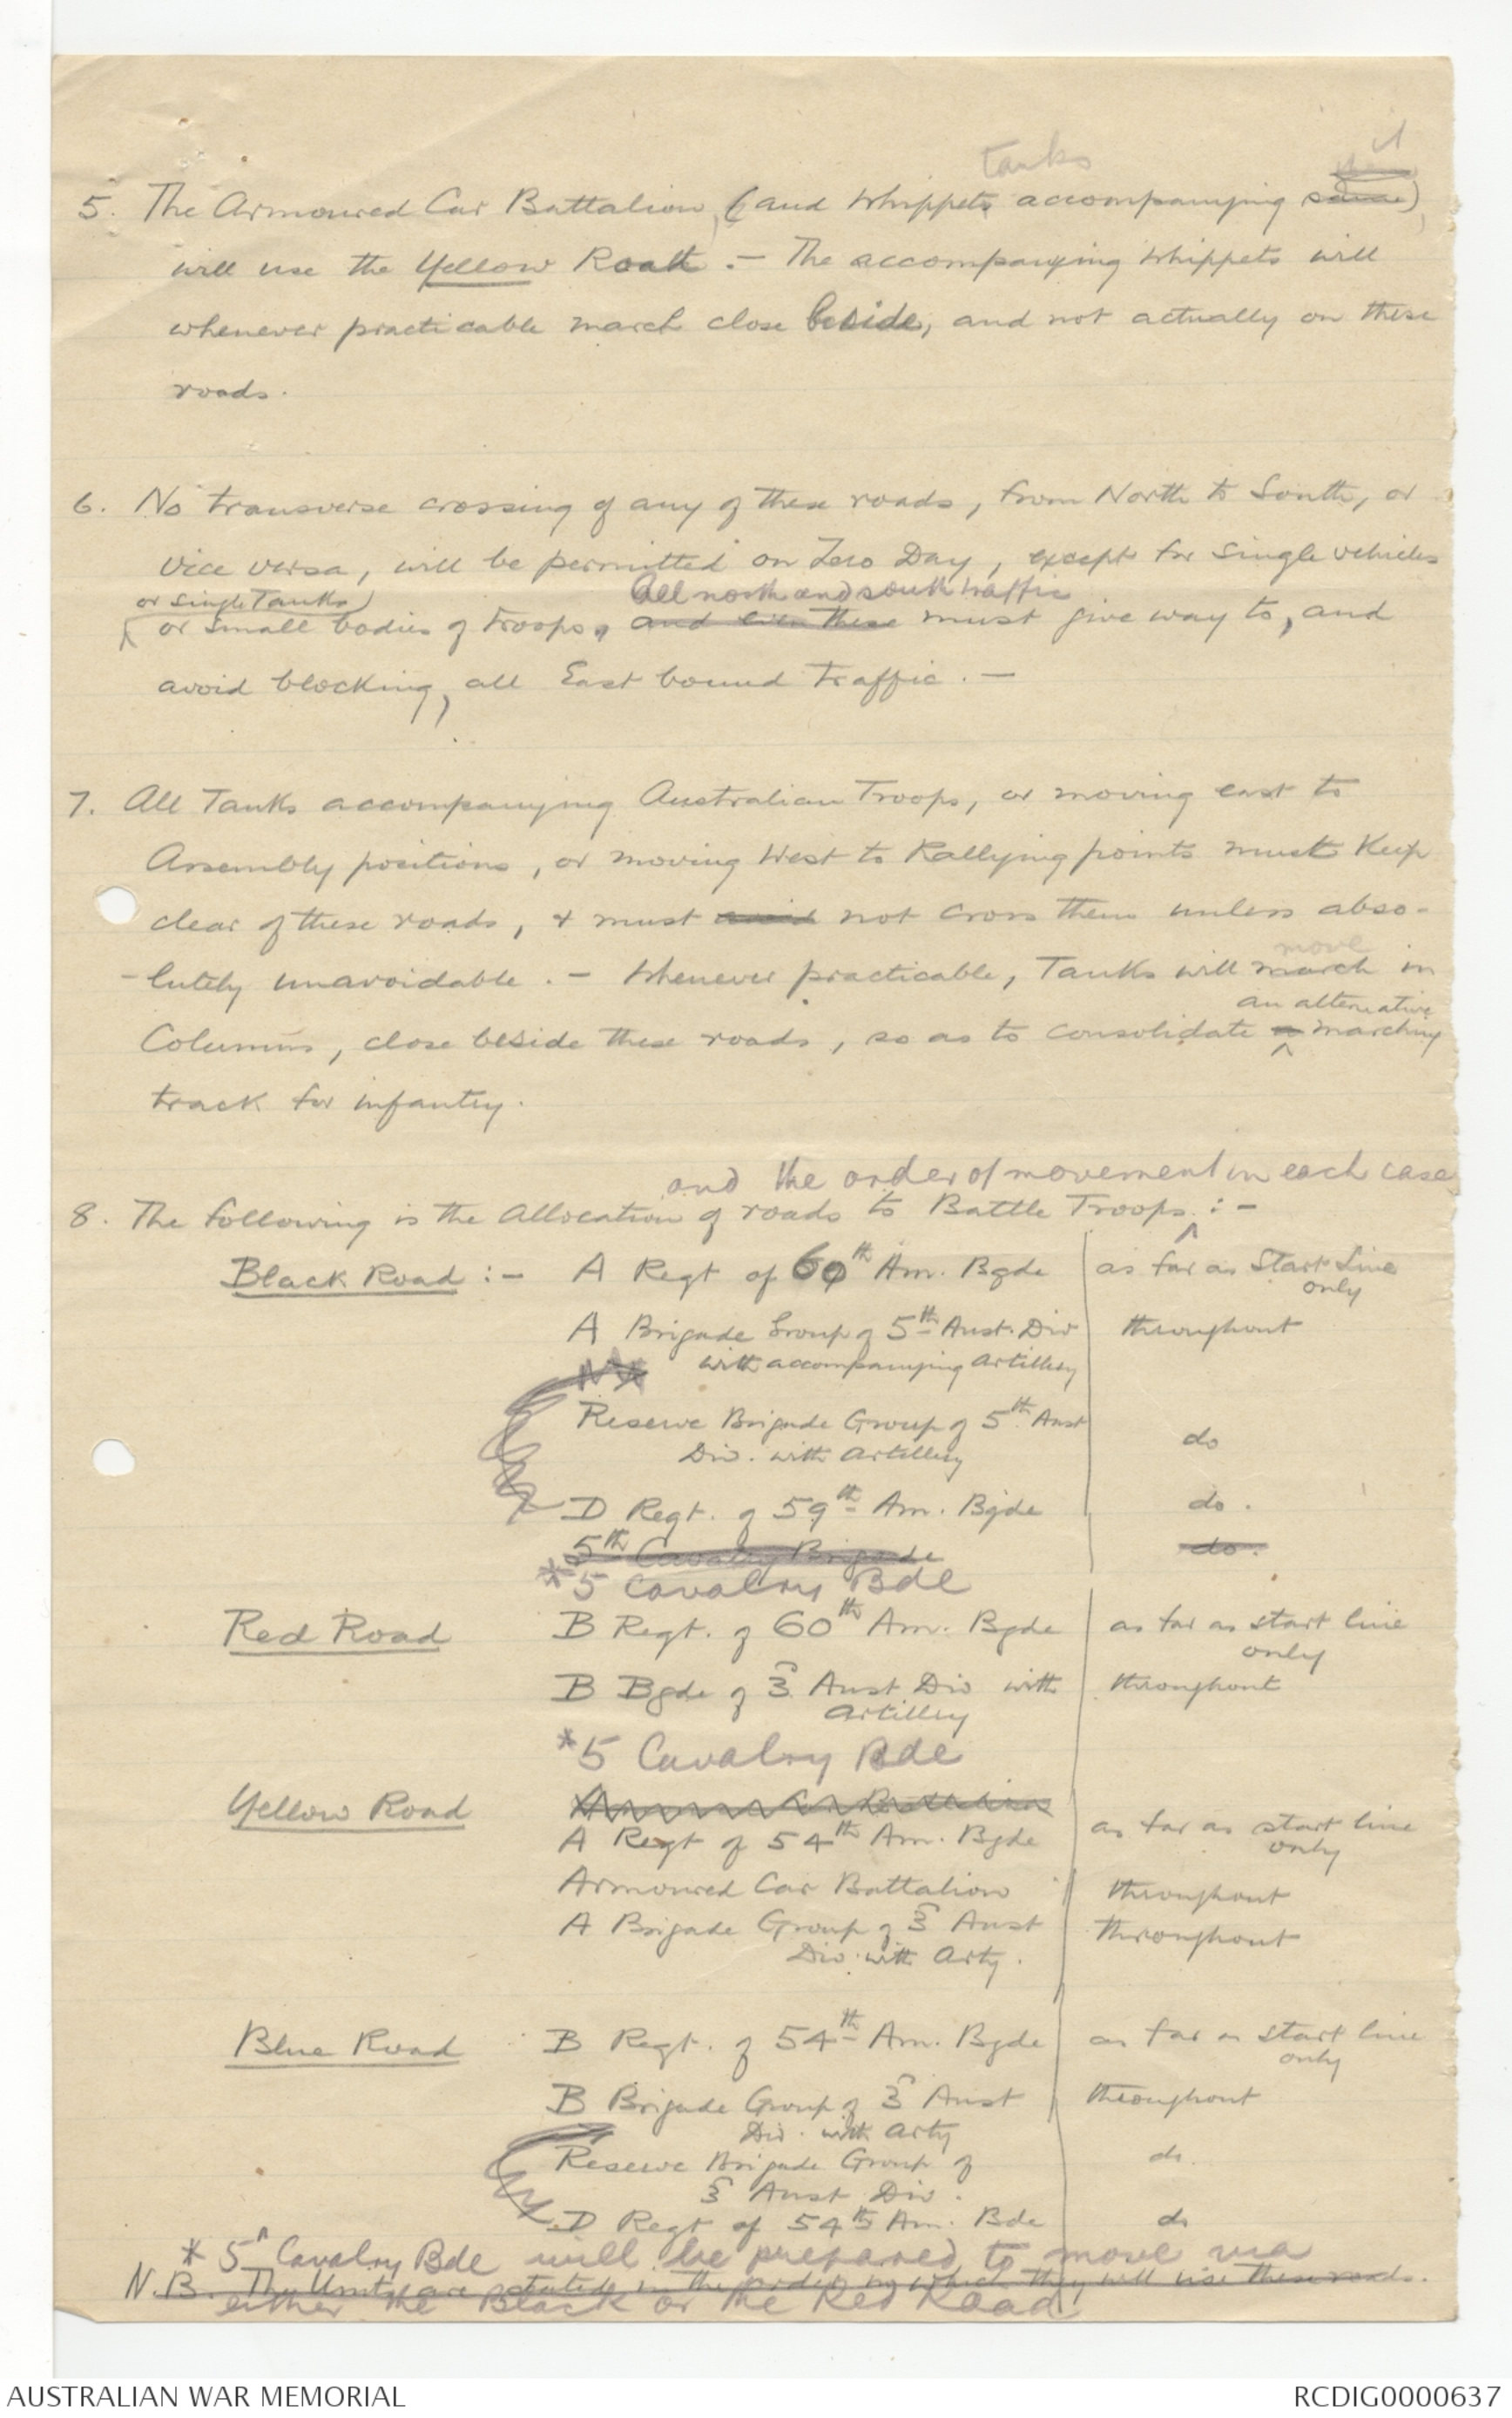 tanks it
5. The Armoured Car Battalion, (and Whippets accompanying same)
will use the Yellow Road. - The accompanying Whippets will
whenever practicable march close beside, and not actually on these
roads.
6. No transverse crossing of any of these roads, from North to South, or
vice versa, will be permitted on Zero Day, except for single vehicles
or single Tanks) All north and south traffic
or small bodies of troops, and even these must give way to, and
avoid blocking, all East bound traffic. -
7. All Tanks accompanying Australian Troops, or moving east to
Assembly positions, or moving West to Rallying points must keep
clear of these roads, & must avoid not cross them unless abso-
-lutely unavoidable. - Whenever practicable, Tanks will march in
move
an alternative
Columns, close beside these roads, so as to consolidate a marching
track for infantry.
and the order of movement in each case
8. The following is the Allocation of roads to Battle Troops :-
Black Road :- A Regt of 60th Am. Bgde as far as Start Line
only
A Brigade Group of 5th Aust. Div throughout
with accompanying Artillery
Reserve Brigade Group of 5th Aust
Div. with Artillery do
D Regt. of 59th Am. Bgde do.
5th Cavalry Brigade do.
*5 Cavalry Bde
Red Road B Regt. of 60th Am. Bgde as far as start line
only
B Bgde of 5 Aust Div with throughout
Artillery
*5 Cavalry Bde
Yellow Road Armoured Car Battalion
A Regt of 54th Am. Bgde as far as start line
only
Armoured Car Battalion throughout
A Brigade Group of 3 Aust throughout
Div. with Arty.
Blue Road B Regt. of 54th Am. Bgde as far as start line
only
B Brigade Group of 3 Aust throughout
Div. with Arty
Reserve Brigade Group of do.
3 Aust Div.
D Regt of 54th Am. Bde do
* 5 Cavalry Bde will be prepared to move via
N.B. The Units are stated in the order in which they will use these roads.
either the Black or the Red Road
AUSTRALIAN WAR MEMORIAL RCDIG0000637